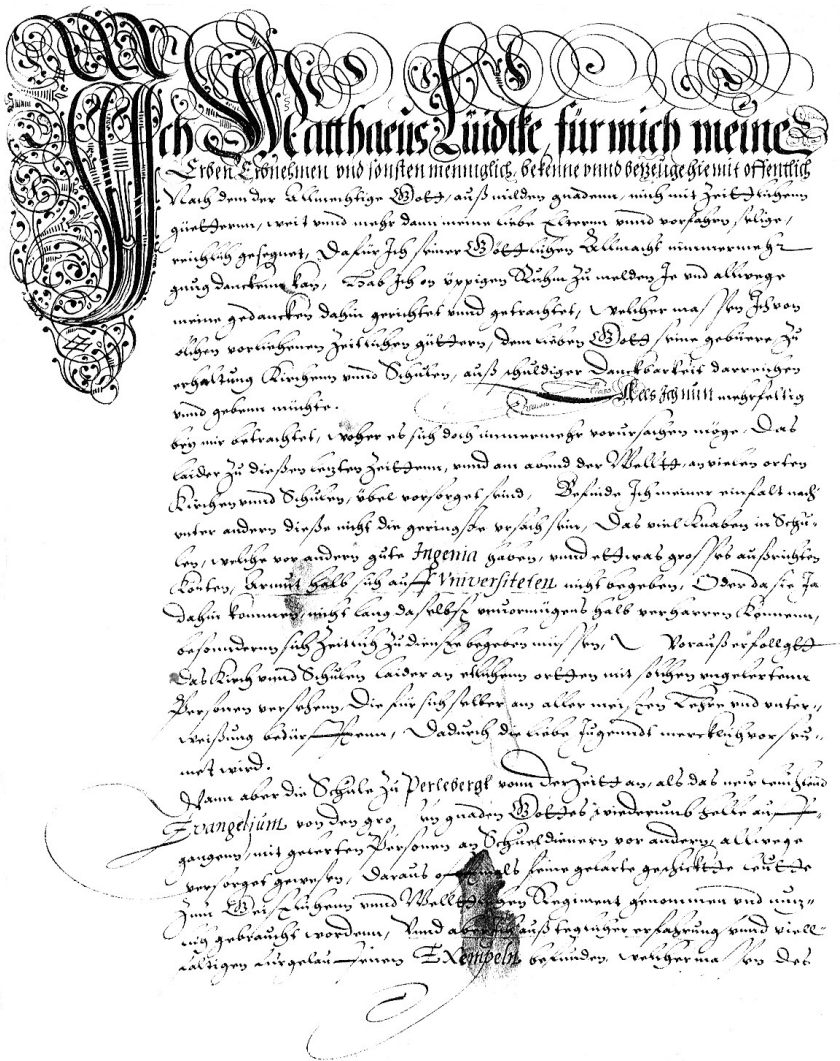 Ich Matthaeus Lüidtke, für mich meine
Erben Erbnehmen vnd sonsten menniglich, bekenne vnnd bezeuge hiemit offentlich
Nach dem der Allmechtige Gott, auß milden gnaden, mich mit Zeittlichenn
güetternn, weit vnnd mehr dann meine liebe Elternn vnnd vorfahren selige,
reichlich gesegnet, Dafür Ich seiner Göttlichen Allmacht nimmermehr
gnug danckenn kan, Hab Ich on üppigen Ruhm zu melden Je vnd allwege
meine gedancken dahin gerichtet vnnd getrachtet, welcher massen Ich von
solchen vorliehenen Zeitlichen güttern, dem lieben Gott seine gebüere zu
erhaltung Kirchenn vnnd Schulen, auß schuldiger Danckbarkeit darreichen
vnnd gebenn müchte. Als Ich nun mehrfeltig
bey mir betrachtet, woher es sich doch immermehr vorursachen möge, Das
laider zu dießen letzten Zeittenn, vnnd am abend der Welltt, an vielen orten
Kirchen vnnd Schulen, übel vorsorget seind, Befinde Ich meiner einfalt nach
vnter andern dieße nicht die geringste vrsach sein, Das viel Knaben in Schu-
len, welche vor andern gute Ingenia haben, vnnd ettwas grosses außrichten
Könten, Armut halb sich auff Vniversiteten nicht begeben, Oder da sie Ja
dahin kommen, nicht lang daselbst vnuermügens halb verharren Könnenn,
besondernn sich Zeitlich zu dienste begeben müssen, Vorauß erfollgtt
Das Kirch vnnd Schulen laider an ettlichenn ortten mit solchen vngelertenn
Personen versehenn, Die für sich selber am aller meisten Lehre vnd vnter-
weißung bedürffenn, Dadurch die liebe Jugenndt mercklich vorseu-
met wird.
Wann aber die Schule zu Perlebergk vonn der Zeitt an, als das new
Evangelium von den gnaden Gottes wiederumb helle auff-
gangenn, mit gelerten Personen an Schueldienern vor andern, allwege
versorget gewesen, Daraus offtmals feine gelarte geschickte leutte
zum Geistlichenn vnnd Welltlichen Regiment genommen vnd nutz-
lich gebraucht wordenn, Vnnd aber Ich auß teglicher erfahrung vnnd viell-
faltigen furgelauffenen Exempeln befunden, welcher massen des